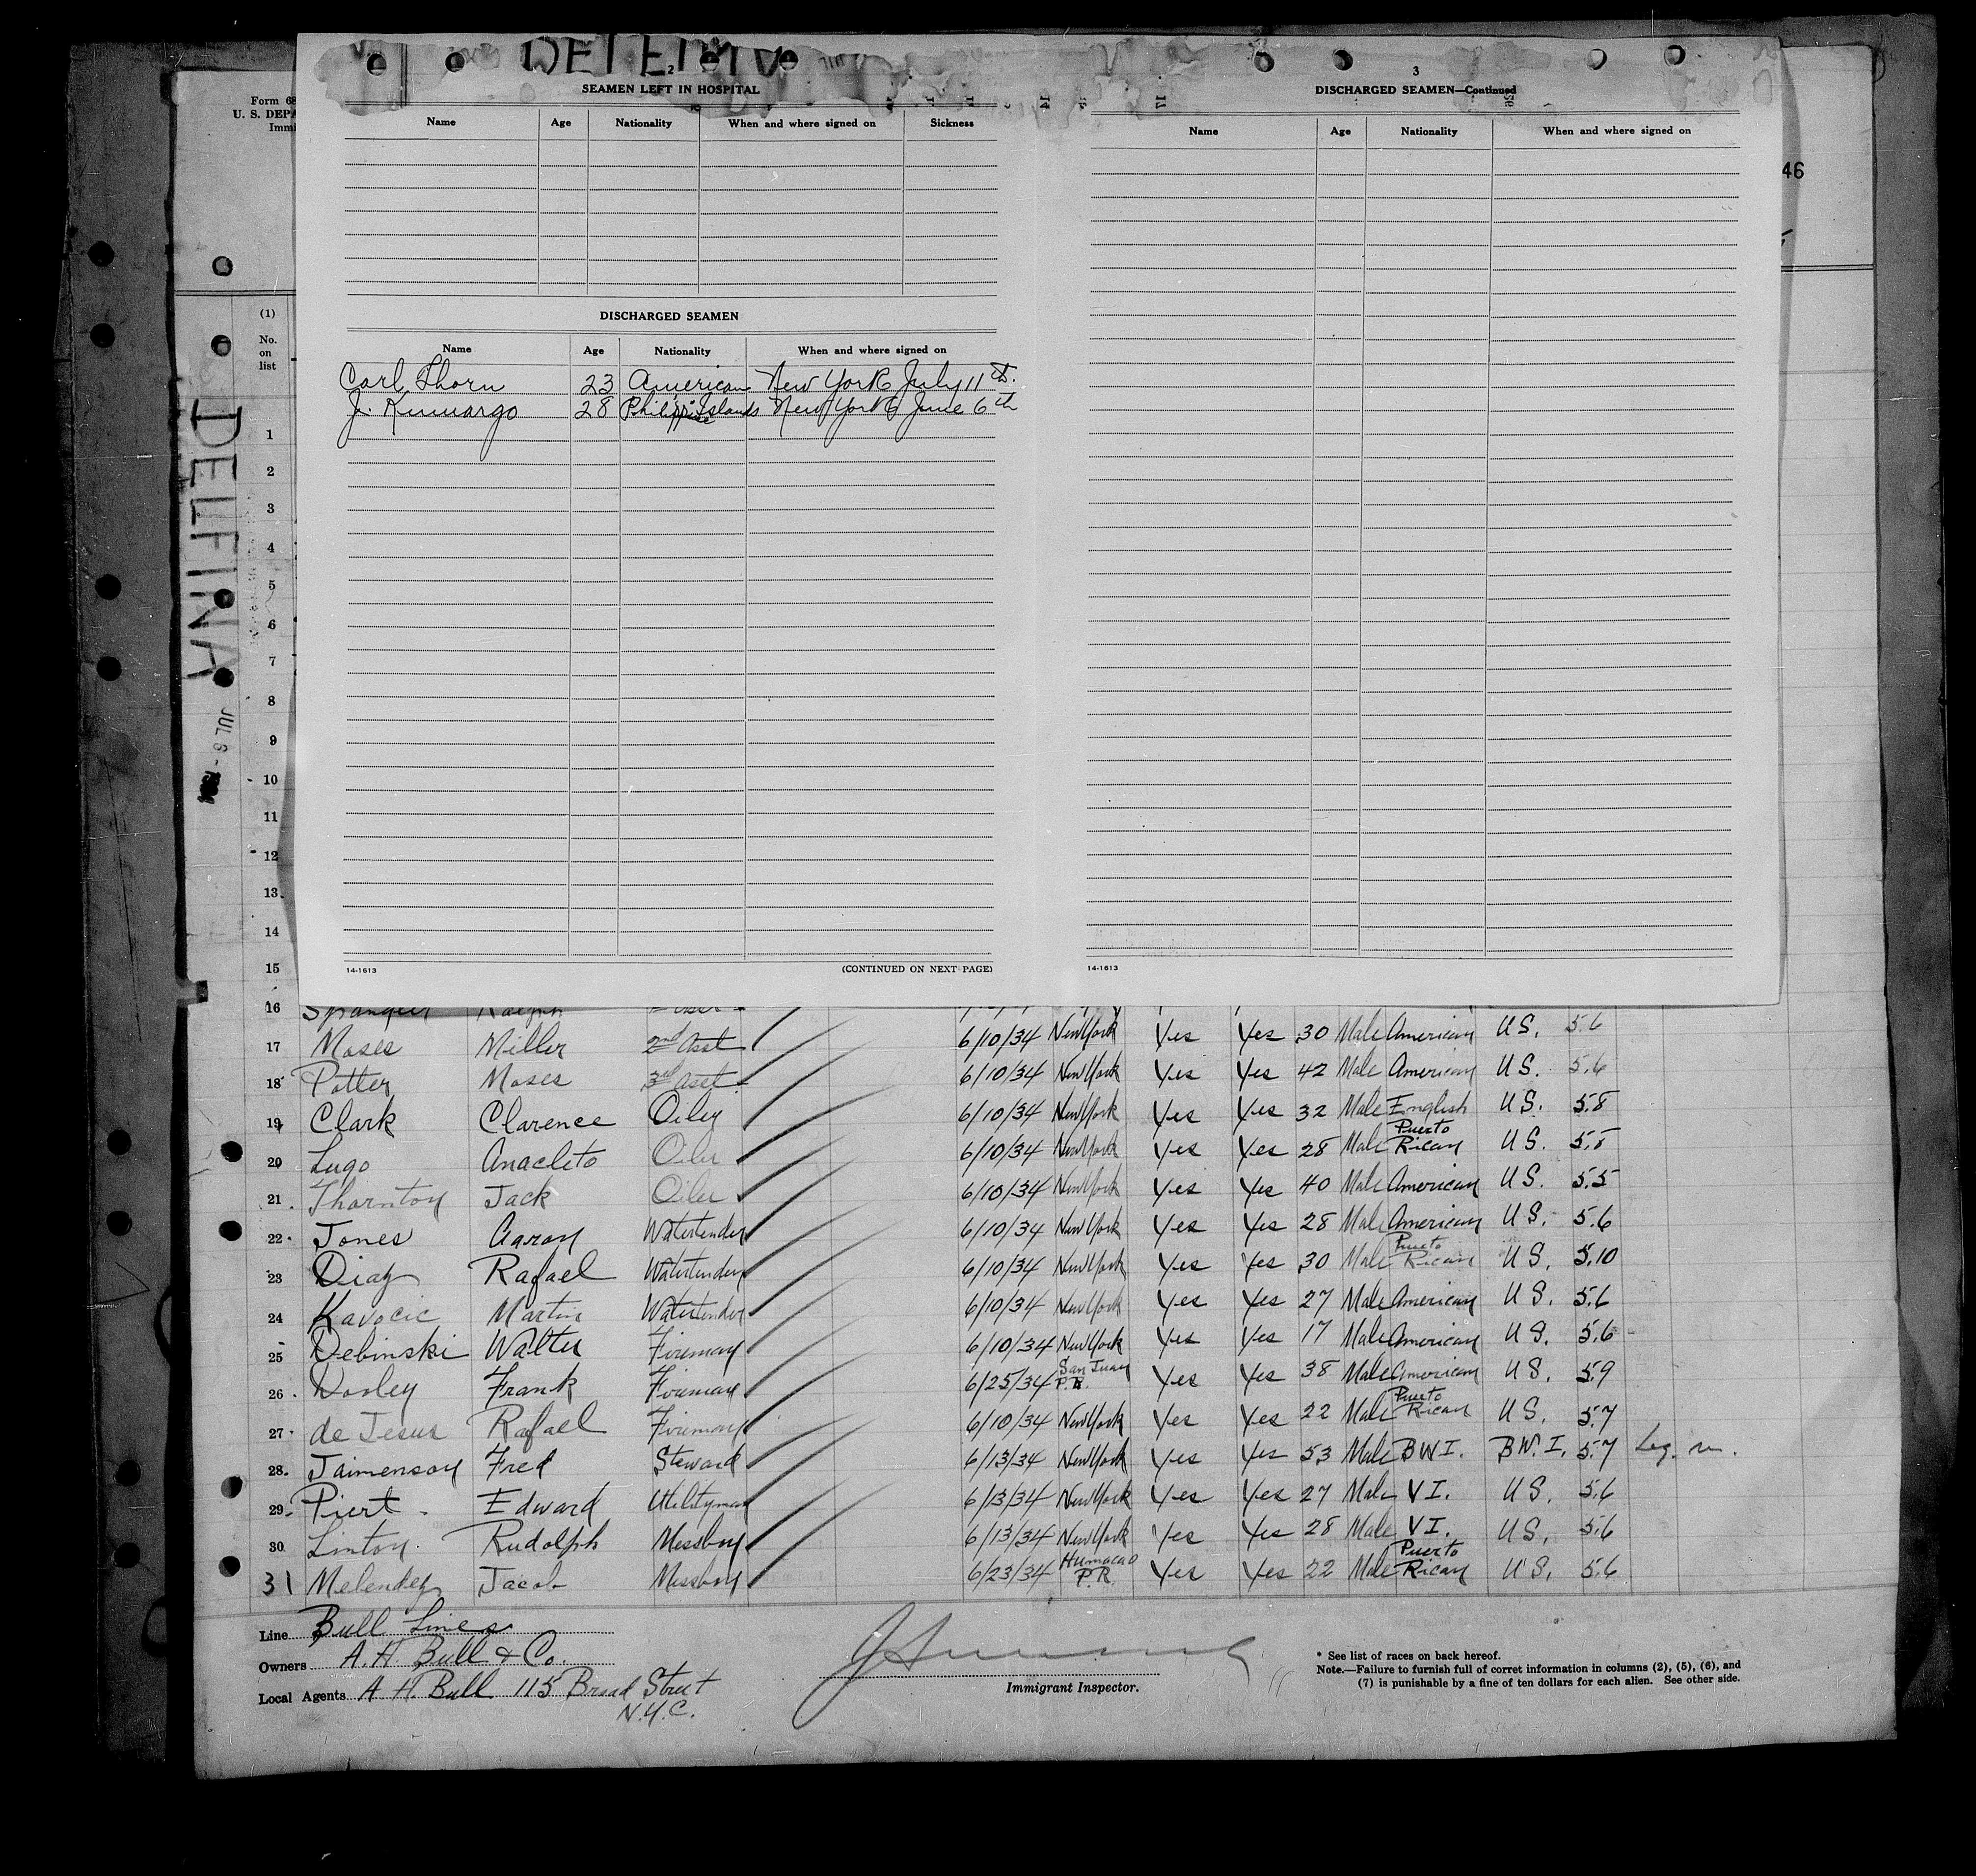 DELFINA
2
SEAMEN LEFT IN HOSPITAL
Name Age Nationality When and where signed on Sickness
DISCHARGED SEAMEN
Name Age Nationality When and where signed on
Carl Thorn 23 American New York July 11th.
J. 28 Philippine Islands New York June 6th
14-1613 (CONTINUED ON NEXT PAGE)
3
DISCHARGED SEAMEN—Continued
Name Age Nationality When and where signed on
14-1613
Form 68
U. S. DEPA
Immi
46
(1)
No.
on
list
DELFINA
JUL 6 -
1
2
3
4
5
6
7
8
9
10
11
12
13
14
15
16 Spangler Ralph
17 Moses Miller 2nd Asst 6/10/34 New York Yes Yes 30 Male American US. 5.6
18 Potter Moses 3rd Asst 6/10/34 New York Yes Yes 42 Male American US. 5.6
19 Clark Clarence Oiler 6/10/34 New York Yes Yes 32 Male English US. 5.8
20 Lugo Anacleto Oiler 6/10/34 New York Yes Yes 28 Male Puerto Rican US. 5.5
21 Thornton Jack Oiler 6/10/34 New York Yes Yes 40 Male American US. 5.5
22 Jones Aaron Watertender 6/10/34 New York Yes Yes 28 Male American US. 5.6
23 Diaz Rafael Watertender 6/10/34 New York Yes Yes 30 Male Puerto Rican US. 5.10
24 Kavocic Martin Watertender 6/10/34 New York Yes Yes 27 Male American US. 5.6
25 Debinski Walter Fireman 6/10/34 New York Yes Yes 17 Male American US. 5.6
26 Dooley Frank Fireman 6/25/34 San Juan P.R. Yes Yes 38 Male American US. 5.9
27 de Jesus Rafael Fireman 6/10/34 New York Yes Yes 22 Male Puerto Rican US. 5.7
28 Jaimenson Fred Steward 6/13/34 New York Yes Yes 53 Male BWI. BW.I. 5.7 Leg.
29 Piert Edward Utilityman 6/13/34 New York Yes Yes 27 Male VI. US. 5.6
30 Linton Rudolph Messboy 6/13/34 New York Yes Yes 28 Male VI. US. 5.6
31 Melendez Jacob Messboy 6/23/34 Humacao P.R. Yes Yes 22 Male Puerto Rican US. 5.6
Line Bull Lines
Owners A.H. Bull & Co.
Local Agents A H. Bull 115 Broad Street
N.Y.C.
Immigrant Inspector.
* See list of races on back hereof.
Note.—Failure to furnish full of corret information in columns (2), (5), (6), and
(7) is punishable by a fine of ten dollars for each alien. See other side.